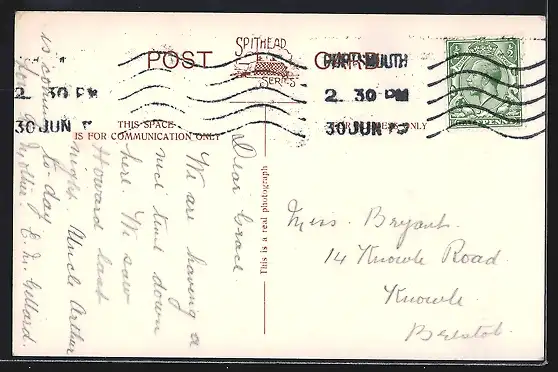 POST CARD
SPITHEAD
SERIES
THIS SPACE
IS FOR COMMUNICATION ONLY
ONLY
This is a real photograph
PORTSMOUTH
2 30 PM
30 JUN
2 30 PM
30 JUN
Dear Grace.
We are having a
nice time down
here. We saw
Howard last
night. Uncle Arthur
is coming to-day.
Your Mother. E. M. Gellard.
Miss. Bryant.
14 Knowle Road.
Knowle
Bristol.